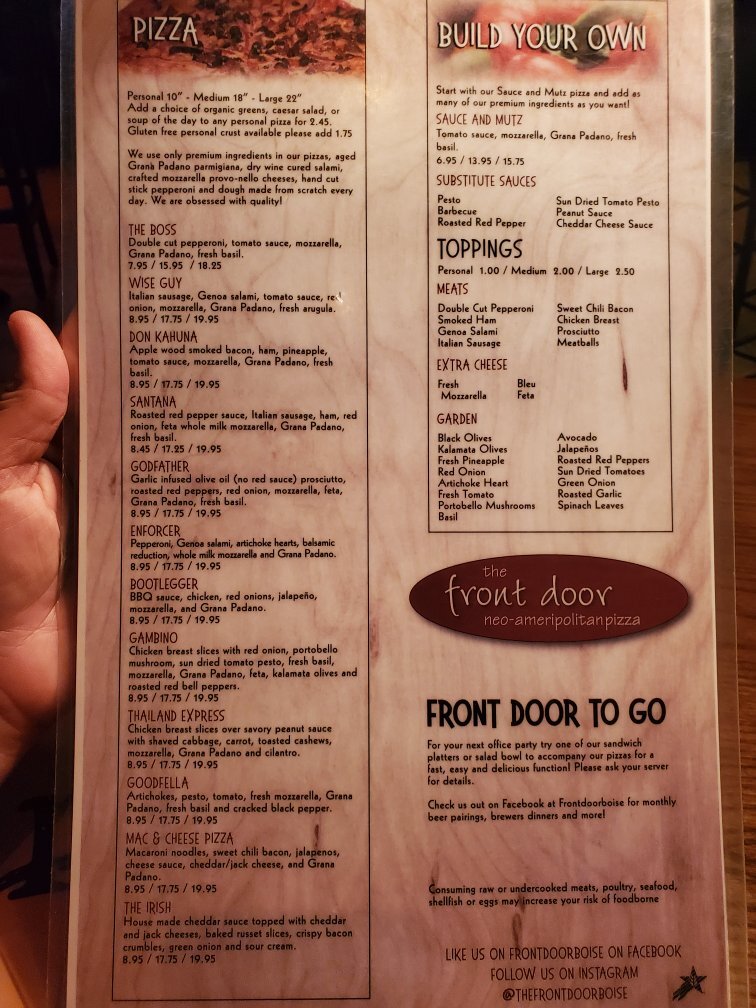 PIZZA
Personal 10" - Medium 18" - Large 22"
Add a choice of organic greens, caesar salad, or
soup of the day to any personal pizza for 2.45.
Gluten free personal crust available please add 1.75
We use only premium ingredients in our pizzas, aged
Grana Padano parmigiana, dry wine cured salami,
crafted mozzarella provo-nello cheeses, hand cut
stick pepperoni and dough made from scratch every
day. We are obsessed with quality!
THE BOSS
Double cut pepperoni, tomato sauce, mozzarella,
Grana Padano, fresh basil.
7.95 / 15.95 / 18.25
WISE GUY
Italian sausage, Genoa salami, tomato sauce, red
onion, mozzarella, Grana Padano, fresh arugula.
8.95 / 17.75 / 19.95
DON KAHUNA
Apple wood smoked bacon, ham, pineapple,
tomato sauce, mozzarella, Grana Padano, fresh
basil.
8.95 / 17.75 / 19.95
SANTANA
Roasted red pepper sauce, Italian sausage, ham, red
onion, feta whole milk mozzarella, Grana Padano,
fresh basil.
8.45 / 17.25 / 19.95
GODFATHER
Garlic infused olive oil (no red sauce) prosciutto,
roasted red peppers, red onion, mozzarella, feta,
Grana Padano, fresh basil.
8.95 / 17.75 / 19.95
ENFORCER
Pepperoni, Genoa salami, artichoke hearts, balsamic
reduction, whole milk mozzarella and Grana Padano.
8.95 / 17.75 / 19.95
BOOTLEGGER
BBQ sauce, chicken, red onions, jalapeño,
mozzarella, and Grana Padano.
8.95 / 17.75 / 19.95
GAMBINO
Chicken breast slices with red onion, portobello
mushroom, sun dried tomato pesto, fresh basil,
mozzarella, Grana Padano, feta, kalamata olives and
roasted red bell peppers.
8.95 / 17.75 / 19.95
THAILAND EXPRESS
Chicken breast slices over savory peanut sauce
with shaved cabbage, carrot, toasted cashews,
mozzarella, Grana Padano and cilantro.
8.95 / 17.75 / 19.95
GOODFELLA
Artichokes, pesto, tomato, fresh mozzarella, Grana
Padano, fresh basil and cracked black pepper.
8.95 / 17.75 / 19.95
MAC & CHEESE PIZZA
Macaroni noodles, sweet chili bacon, jalapenos,
cheese sauce, cheddar/jack cheese, and Grana
Padano.
8.95 / 17.75 / 19.95
THE IRISH
House made cheddar sauce topped with cheddar
and jack cheeses, baked russet slices, crispy bacon
crumbles, green onion and sour cream.
8.95 / 17.75 / 19.95
BUILD YOUR OWN
Start with our Sauce and Mutz pizza and add as
many of our premium ingredients as you want!
SAUCE AND MUTZ
Tomato sauce, mozzarella, Grana Padano, fresh
basil.
6.95 / 13.95 / 15.75
SUBSTITUTE SAUCES
Pesto
Barbecue
Roasted Red Pepper
Sun Dried Tomato Pesto
Peanut Sauce
Cheddar Cheese Sauce
TOPPINGS
Personal 1.00 / Medium 2.00 / Large 2.50
MEATS
Double Cut Pepperoni
Smoked Ham
Genoa Salami
Italian Sausage
Sweet Chili Bacon
Chicken Breast
Prosciutto
Meatballs
EXTRA CHEESE
Fresh
Mozzarella
Bleu
Feta
GARDEN
Black Olives
Kalamata Olives
Fresh Pineapple
Red Onion
Artichoke Heart
Fresh Tomato
Portobello Mushrooms
Basil
Avocado
Jalapeños
Roasted Red Peppers
Sun Dried Tomatoes
Green Onion
Roasted Garlic
Spinach Leaves
the
front door
neo-ameripolitanpizza
FRONT DOOR TO GO
For your next office party try one of our sandwich
platters or salad bowl to accompany our pizzas for a
fast, easy and delicious function! Please ask your server
for details.
Check us out on Facebook at Frontdoorboise for monthly
beer pairings, brewers dinners and more!
Consuming raw or undercooked meats, poultry, seafood,
shellfish or eggs may increase your risk of foodborne
LIKE US ON FRONTDOORBOISE ON FACEBOOK
FOLLOW US ON INSTAGRAM
@THEFRONTDOORBOISE